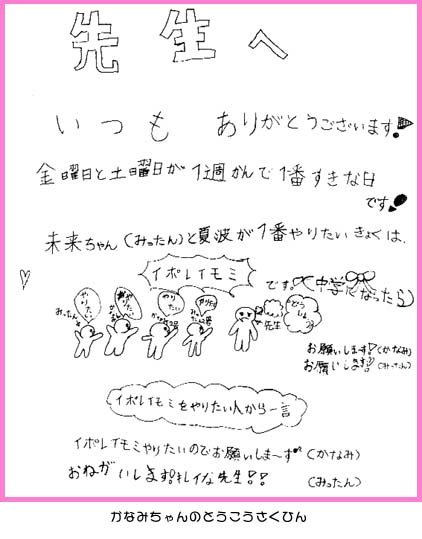 先生へ
いつも ありがとうございます!
金曜日と土曜日が1週かんで1番すきな日
です!
未来ちゃん(みったん)と夏波が1番やりたいきょくは、
イポレイモミ
です。(中学になったら)
やりたい
やりたい
みったん
先生
どうしよう
お願いします!(かなみ)
お願いします!!(みったん)
イポレイモミをやりたい人から一言
イポレイモミやりたいのでお願いしま〜す(かなみ)
おねがいします。キレイな先生!!
(みったん)
かなみちゃんのとうこうさくひん